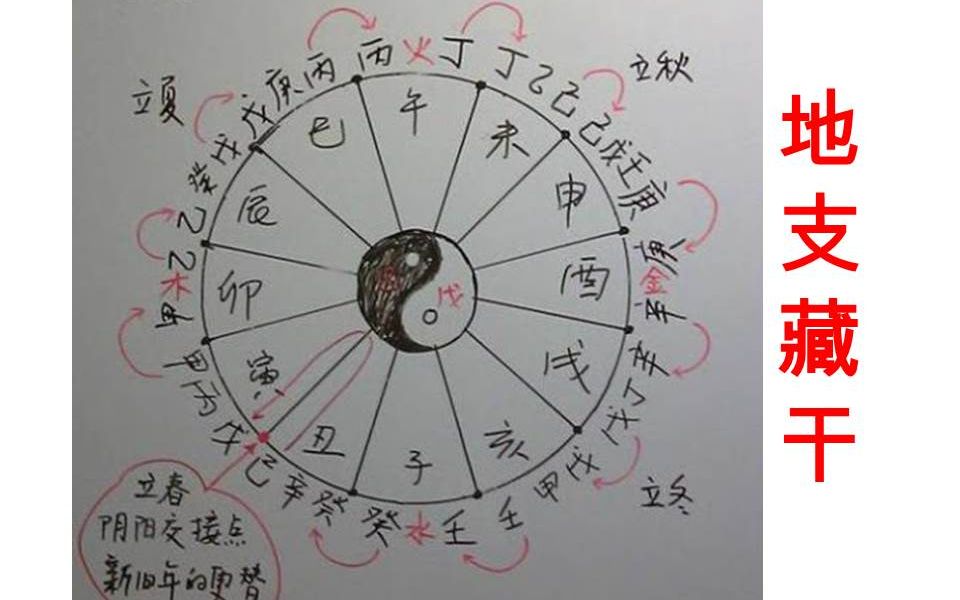 地支藏干
立夏
立秋
立冬
立春
阴阳交接点
新旧年的更替
午
未
申
酉
戌
亥
子
丑
寅
卯
辰
巳
丙 火 丁
丁 乙 己
己 戊 壬 庚
庚 金 辛
辛 丁 戊
戊 甲 壬
壬 水 癸
癸 辛 己
戊 丙 甲
甲 木 乙
乙 癸 戊
戊 庚 丙
戊